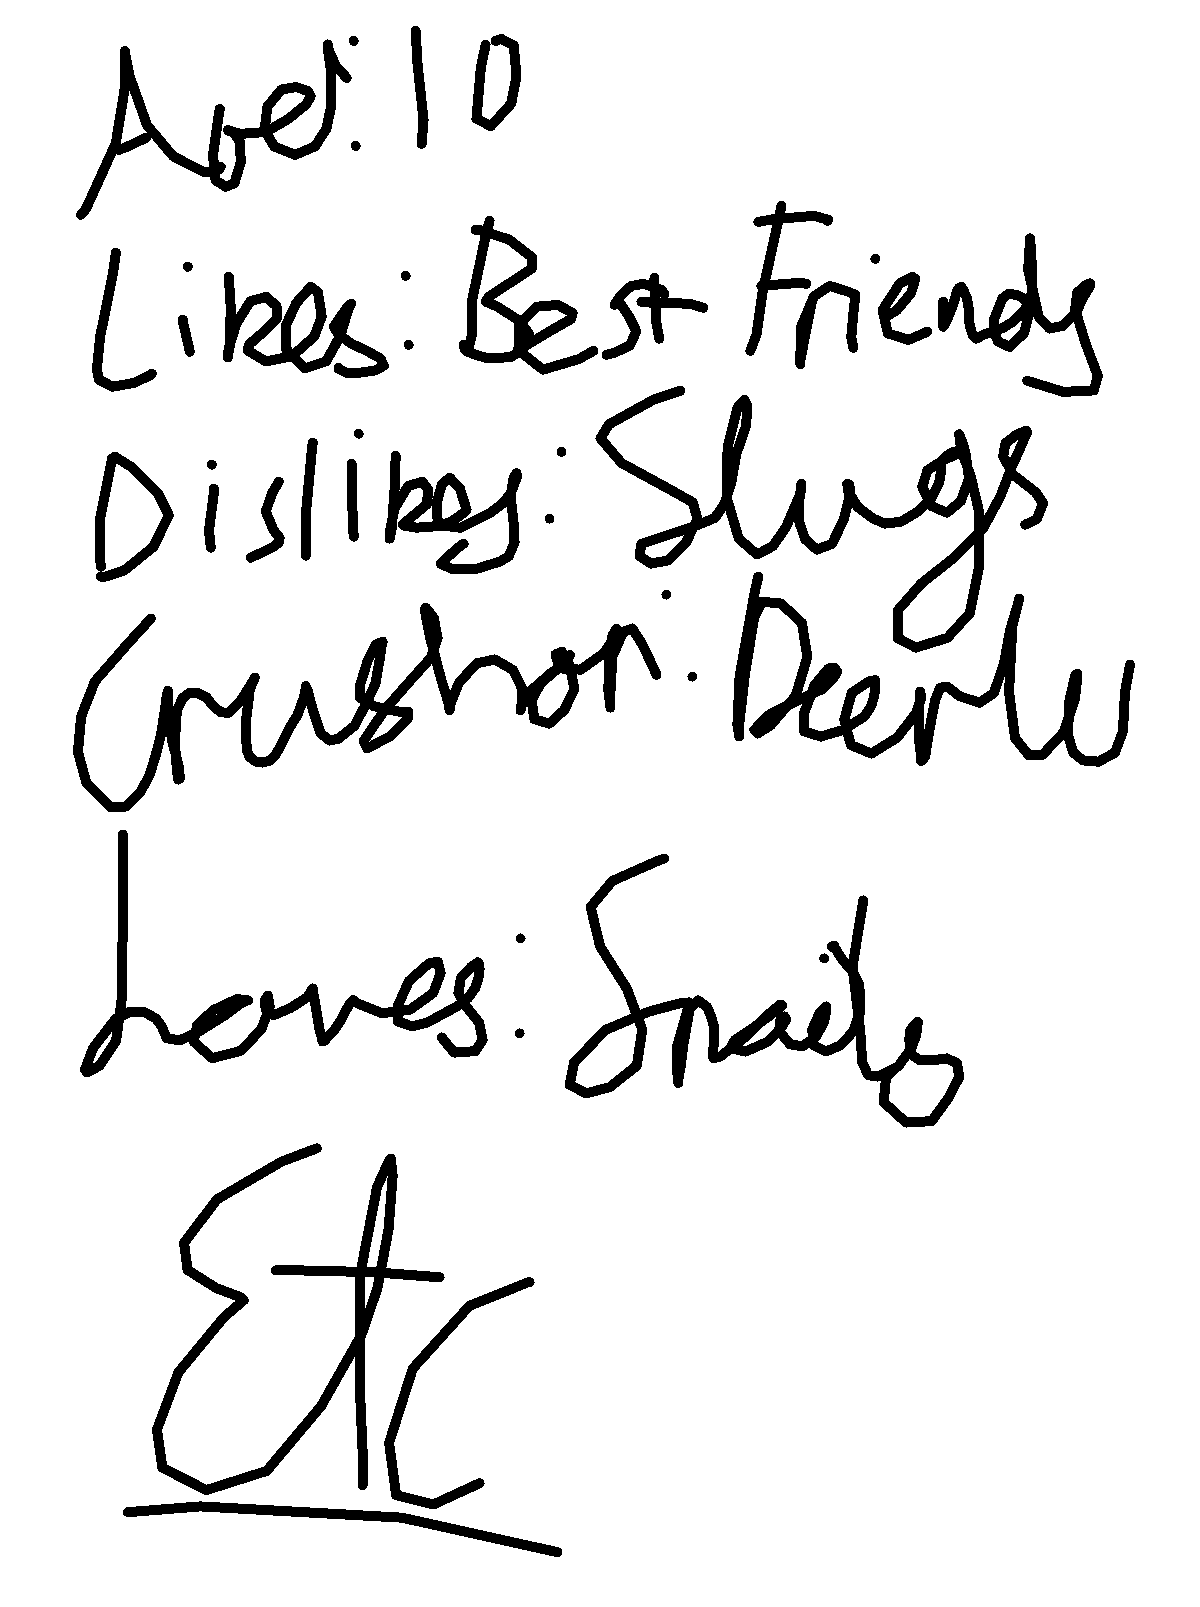 Age: 10
Likes: Best Friends
Dislikes: Slugs
Crush on: Deerlu
Loves: Snails
Etc